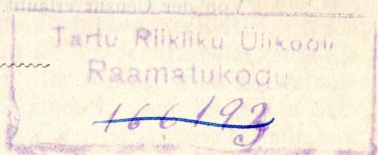 Tartu Riikliku Ülikooli
Raamatukogu
166193